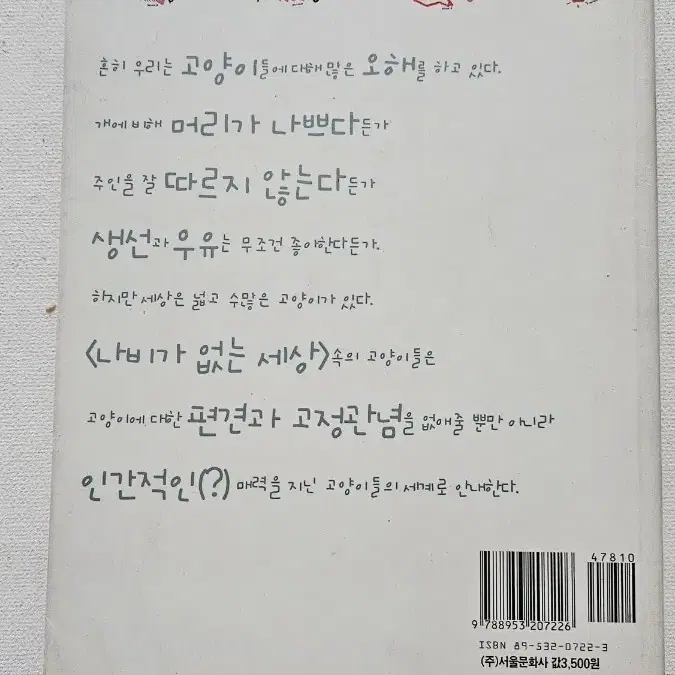 흔히 우리는 고양이들에 대해 많은 오해를 하고 있다.
개에 비해 머리가 나쁘다든가
주인을 잘 따르지 않는다든가
생선과 우유는 무조건 좋아한다든가.
하지만 세상은 넓고 수많은 고양이가 있다.
<나비가 없는 세상>속의 고양이들은
고양이에 대한 편견과 고정관념을 없애줄 뿐만 아니라
인간적인(?) 매력을 지닌 고양이들의 세계로 안내한다.
47810
9 788953 207226
ISBN 89-532-0722-3
(주)서울문화사 값3,500원